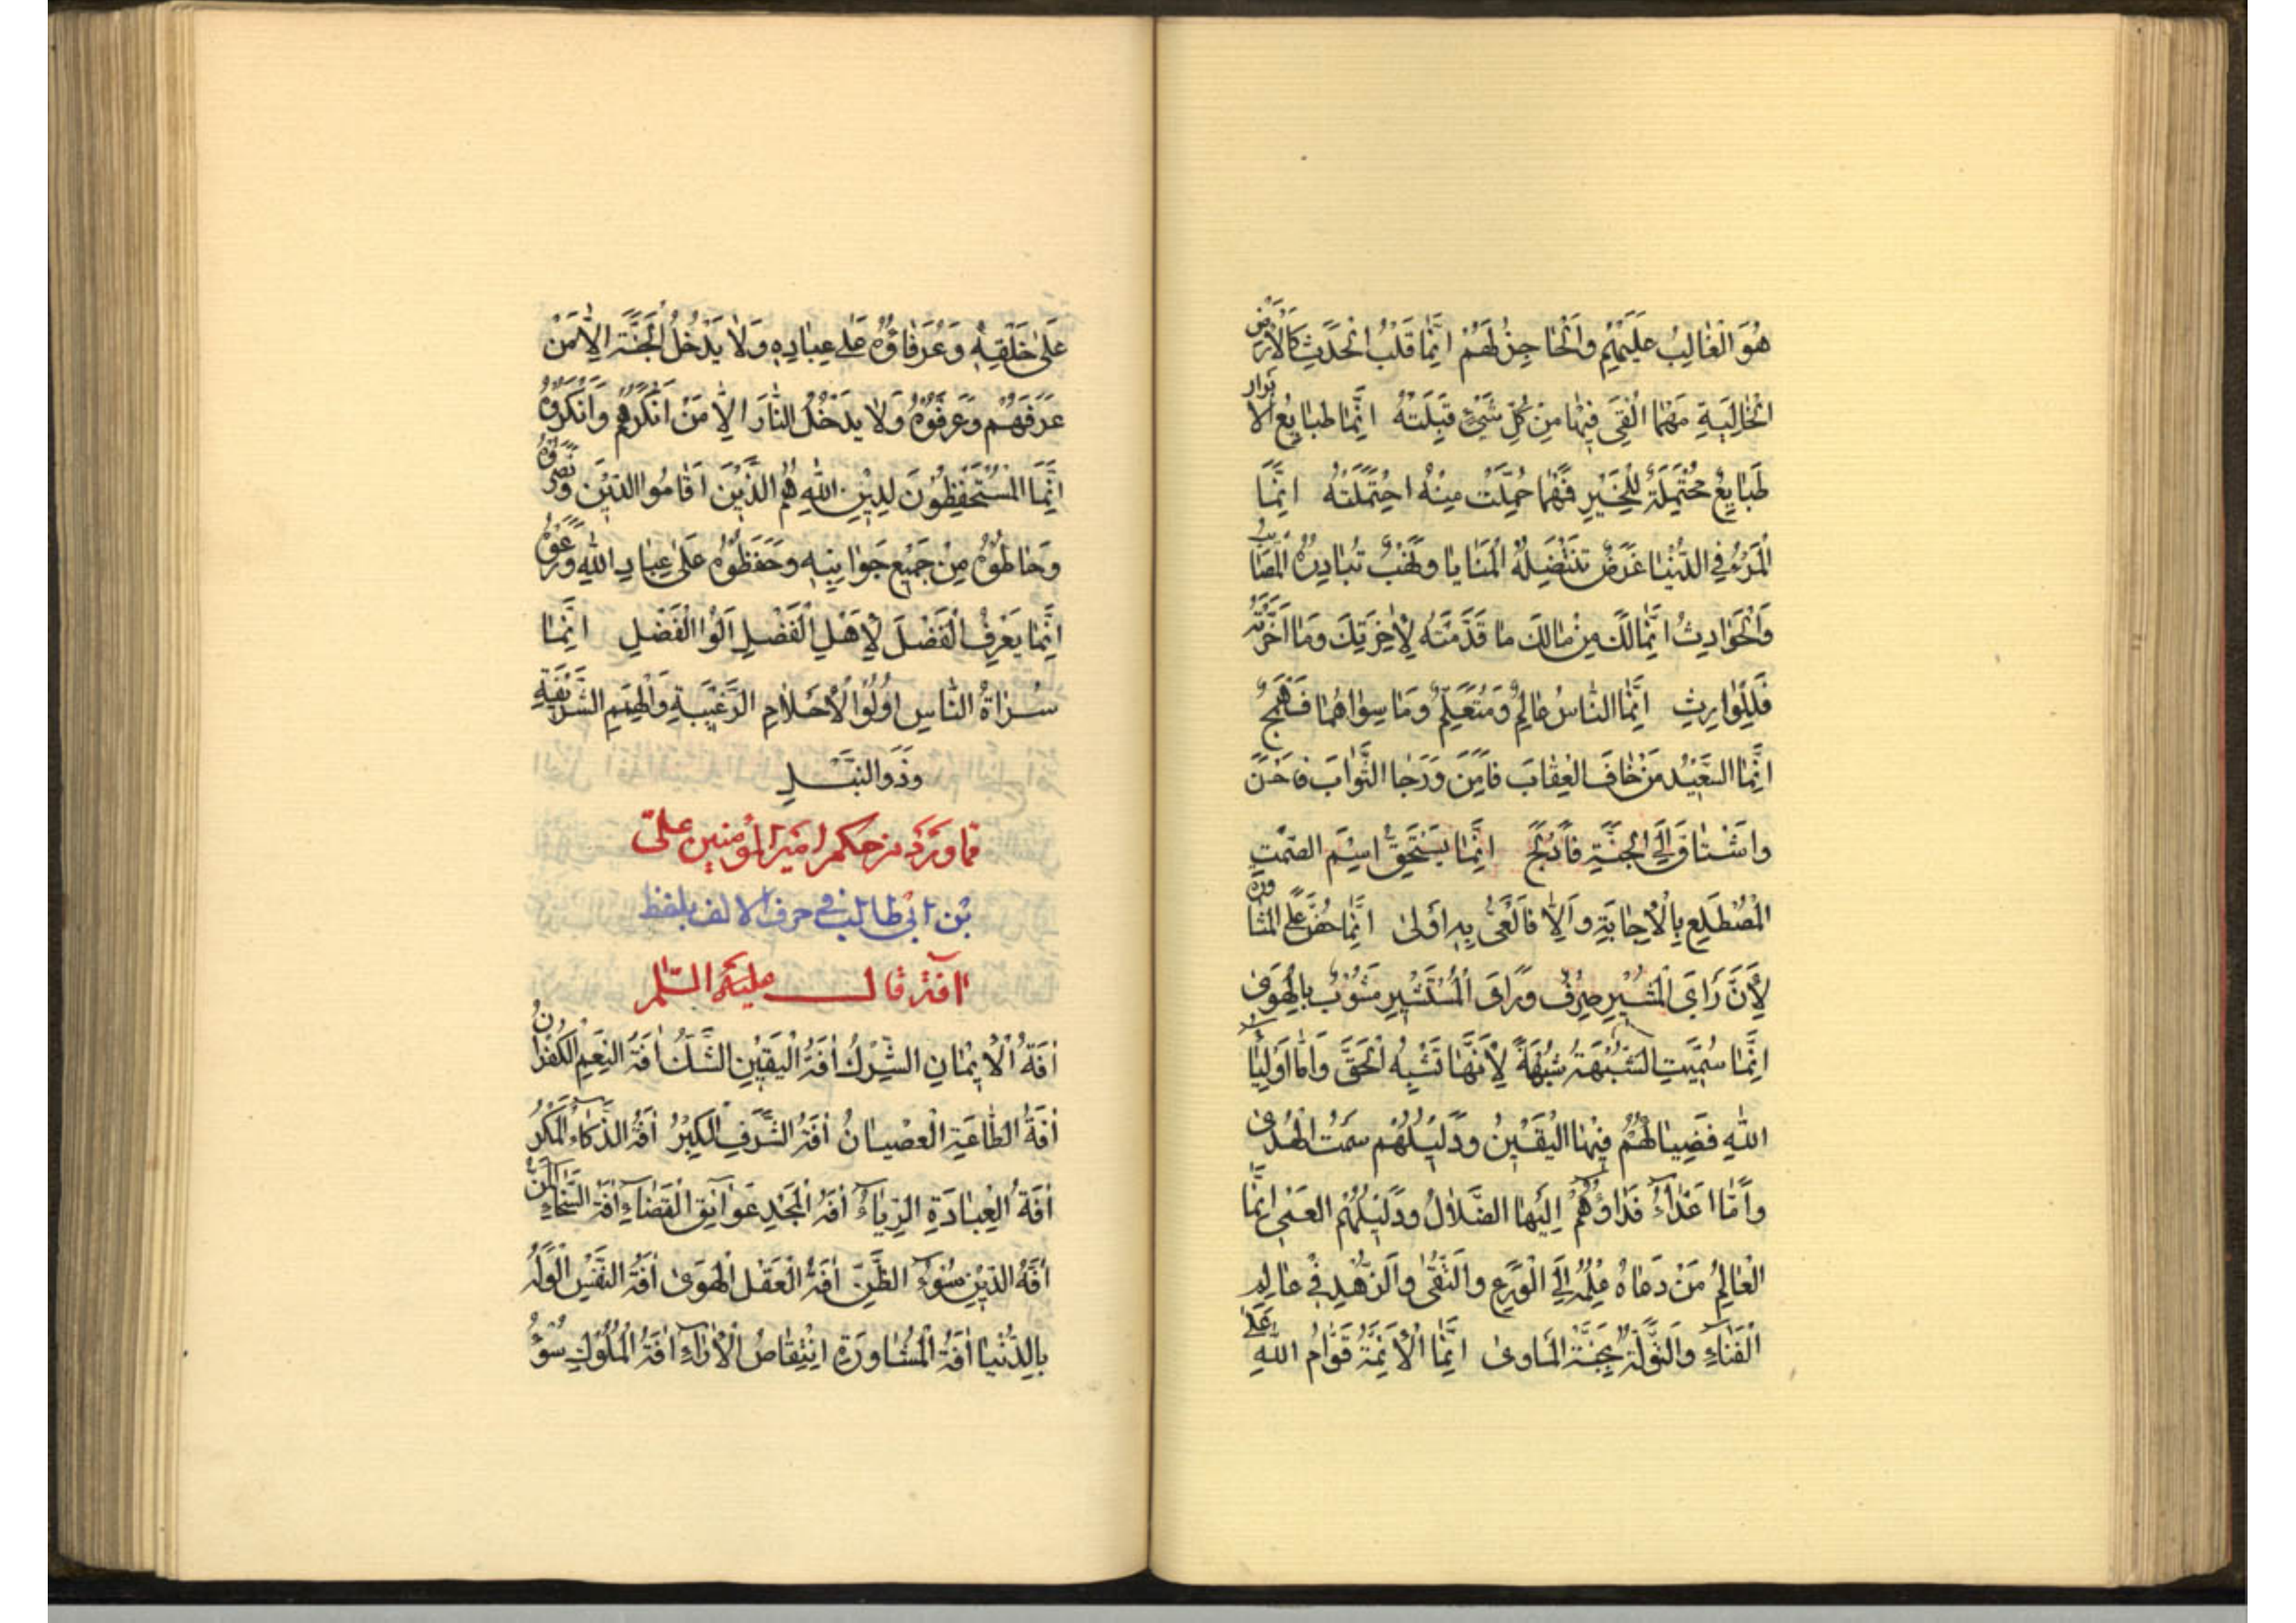 هُوَ الْغَالِبُ عَلَيْهِمْ وَالْحَاجِزُ لَهُمْ اِنَّمَا قَلْبُ الْحَدَثِ كَالْاَرْضِ
الْخَالِيَةِ مَهْمَا اُلْقِىَ فِيهَا مِنْ كُلِّ شَىْءٍ قَبِلَتْهُ اِنَّمَا طَبَايِعُ الْاَبْرَارِ
طَبَايِعُ مُحْتَمِلَةٌ لِلْخَيْرِ فَمَهْمَا حُمِّلَتْ مِنْهُ احْتَمَلَتْهُ اِنَّمَا
الْمَرْءُ فِى الدُّنْيَا غَرَضٌ تَنْتَضِلُهُ الْمَنَايَا وَنَهْبٌ تُبَادِرُهُ الْمَصَائِبُ
وَالْحَوَادِثُ اِنَّمَا لَكَ مِنْ مَالِكَ مَا قَدَّمْتَهُ لِاٰخِرَتِكَ وَمَا اَخَّرْتَهُ
فَلِلْوَارِثِ اِنَّمَا النَّاسُ عَالِمٌ وَمُتَعَلِّمٌ وَمَا سِوَاهُمَا فَهَمَجٌ
اِنَّمَا السَّعِيْدُ مَنْ خَافَ الْعِقَابَ فَاٰمَنَ وَرَجَا الثَّوَابَ فَاَحْسَنَ
وَاشْتَاقَ اِلَى الْجَنَّةِ فَاَدْلَجَ اِنَّمَا يَسْتَحِقُّ اسْمَ الصَّمْتِ
الْمُضْطَلِعُ بِالْاِجَابَةِ وَاِلَّا فَالْعَىُّ بِهِ اَوْلٰى اِنَّمَا حُضَّ عَلَى الْمَشَاوَرَةِ
لِاَنَّ رَاْىَ الْمُشِيْرِ صِرْفٌ وَرَاْىَ الْمُسْتَشِيْرِ مَشُوْبٌ بِالْهَوٰى
اِنَّمَا سُمِّيَتِ الشُّبْهَةُ شُبْهَةً لِاَنَّهَا تَشْبِهُ الْحَقَّ وَاَمَّا اَوْلِيَاءُ
اللّٰهِ فَضِيَاؤُهُمْ فِيْهَا الْيَقِيْنُ وَدَلِيْلُهُمْ سَمْتُ الْهُدٰى
وَاَمَّا اَعْدَاءُ فَدُعَاؤُهُمْ اِلَيْهَا الضَّلَالُ وَدَلِيْلُهُمُ الْعَمٰى اِنَّمَا
الْعَالِمُ مَنْ دَعَاهُ عِلْمُهُ اِلَى الْوَرَعِ وَالتُّقٰى وَالزُّهْدِ فِى عَالَمِ
الْفَنَاءِ وَالتَّوَلُّهِ بِجَنَّةِ الْمَاْوٰى اِنَّمَا الْاَئِمَّةُ قَوَّامُ اللّٰهِ
عَلٰى خَلْقِهِ وَعُرَفَاؤُهُ عَلٰى عِبَادِهِ وَلَا يَدْخُلُ الْجَنَّةَ اِلَّا مَنْ
عَرَفَهُمْ وَعَرَفُوْهُ وَلَا يَدْخُلُ النَّارَ اِلَّا مَنْ اَنْكَرَهُمْ وَاَنْكَرُوْهُ
اِنَّمَا الْمُسْتَحْفِظُوْنَ لِدِيْنِ اللّٰهِ هُمُ الَّذِيْنَ اَقَامُوا الدِّيْنَ وَنَصَرُوْهُ
وَحَاطُوْهُ مِنْ جَمِيْعِ جَوَانِبِهِ وَحَفِظُوْهُ عَلٰى عِبَادِ اللّٰهِ وَرَعَوْهُ
اِنَّمَا يَعْرِفُ الْفَضْلَ لِاَهْلِ الْفَضْلِ اُولُوا الْفَضْلِ اِنَّمَا
سُرَاةُ النَّاسِ اُولُوا الْاَحْلَامِ الرَّغِيْبَةِ وَالْهِمَمِ الشَّرِيْفَةِ
وَذَوُوا النُّبْلِ
مما ورد من حكم امير المؤمنين على
بن ابى طالب فى حرف الالف بلفظ
آفة قال عليه السلم
اٰفَةُ الْاِيْمَانِ الشِّرْكُ اٰفَةُ الْيَقِيْنِ الشَّكُّ اٰفَةُ النِّعَمِ الْكُفْرَانُ
اٰفَةُ الطَّاعَةِ الْعِصْيَانُ اٰفَةُ الشَّرَفِ الْكِبْرُ اٰفَةُ الذَّكَاءِ الْمَكْرُ
اٰفَةُ الْعِبَادَةِ الرِّيَاءُ اٰفَةُ الْمَجْدِ عَوَائِقُ الْقَضَاءِ اٰفَةُ السَّخَاءِ الْمَنُّ
اٰفَةُ الدِّيْنِ سُوْءُ الظَّنِّ اٰفَةُ الْعَقْلِ الْهَوٰى اٰفَةُ النَّفْسِ الْوَلَهُ
بِالدُّنْيَا اٰفَةُ الْمُشَاوَرَةِ انْتِقَاضُ الْاٰرَاءِ اٰفَةُ الْمُلُوْكِ سُوْءُ